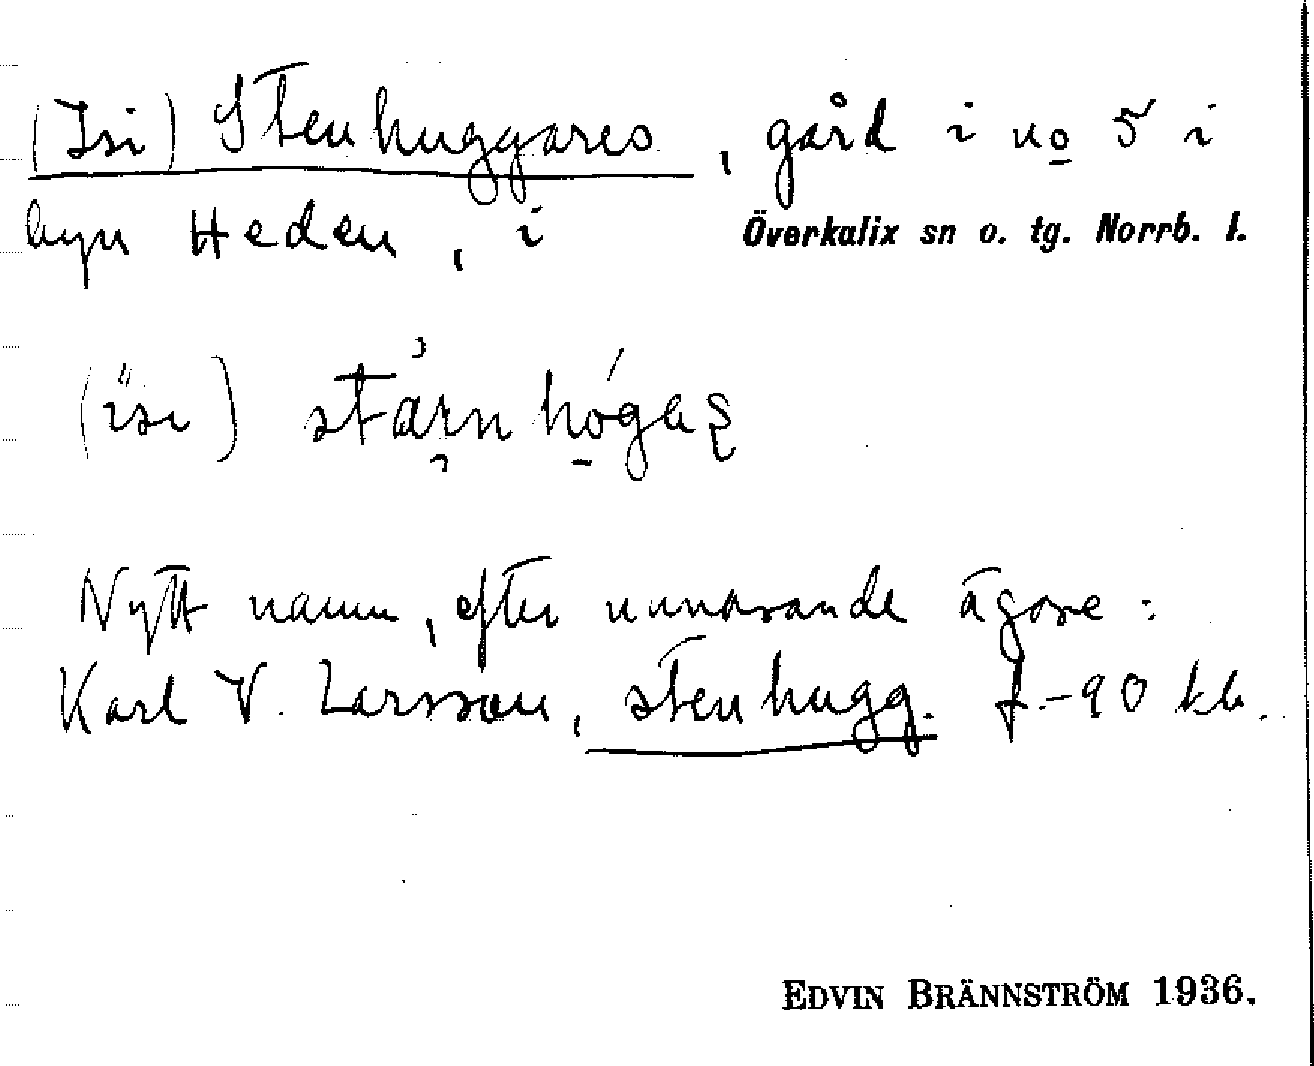 (Isi) Stenhuggares, gård i no 5 i
byn Heden, i Överkalix sn o. tg. Norrb. l.
Nytt namn, efter nuvarande ägare:
Karl V. Larsson, stenhugg. f.-90 kb.
EDVIN BRÄNNSTRÖM 1936.